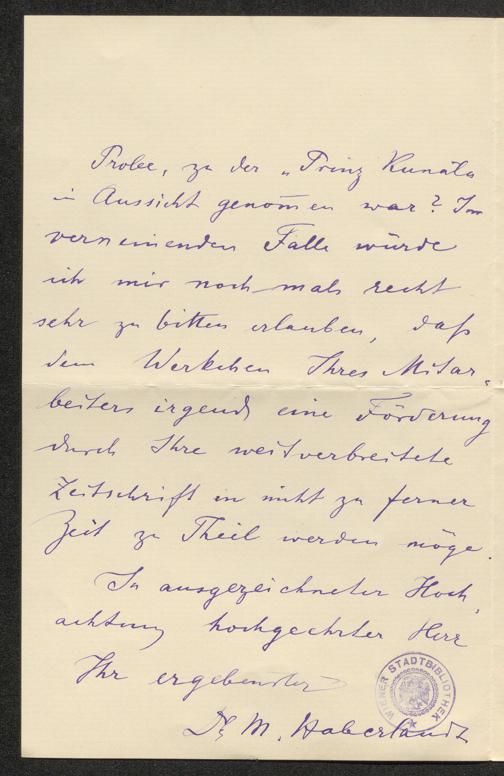 Probe, zu der „Prinz Kunâla
in Aussicht genom̄en war? Im
verneinenden Falle würde
ich mir noch mals recht
sehr zu bitten erlauben, daß
dem Werkchen Ihres Mitar-
beiters irgend eine Förderung
durch Ihre weitverbreitete
Zeitschrift in nicht zu ferner
Zeit zu Theil werden möge.
In ausgezeichneter Hoch-
achtung hochgeehrter Herr
Ihr ergebenster
Dr. M. Haberlandt
WIENER STADTBIBLIOTHEK